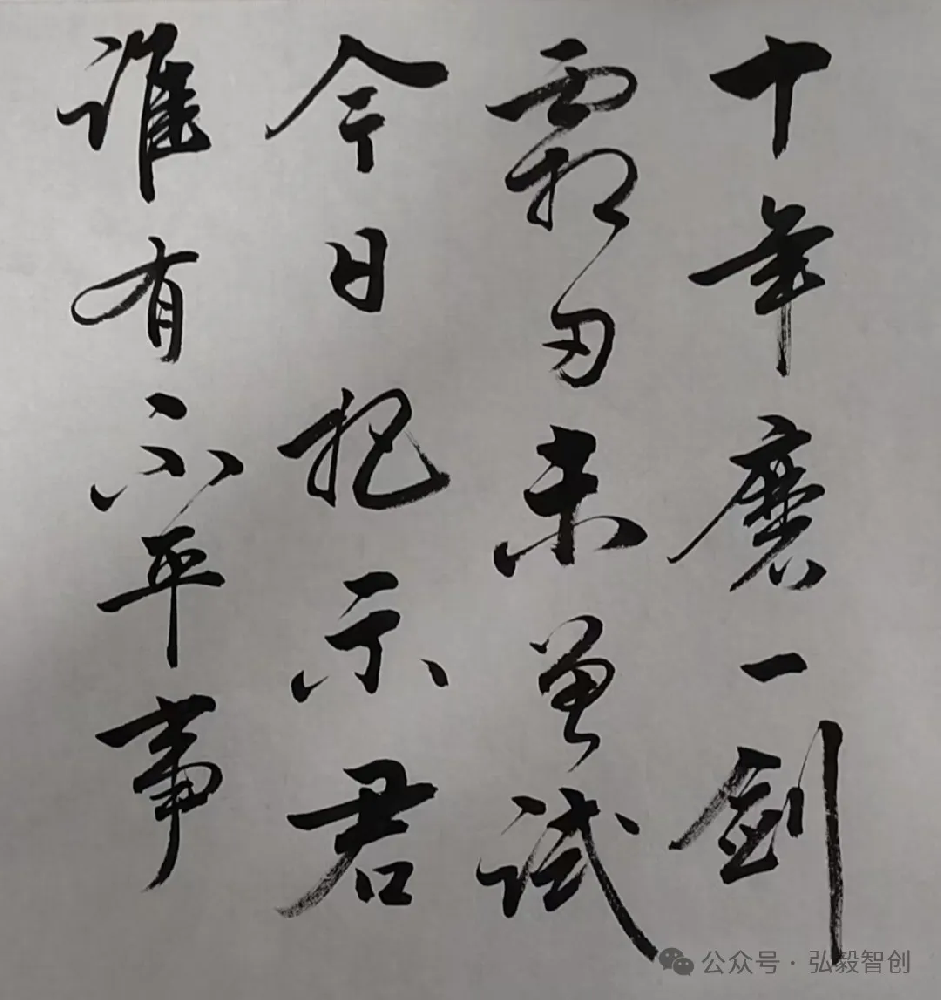 十年磨一劍
霜刃未曾試
今日把示君
誰有不平事
公众号·弘毅智创